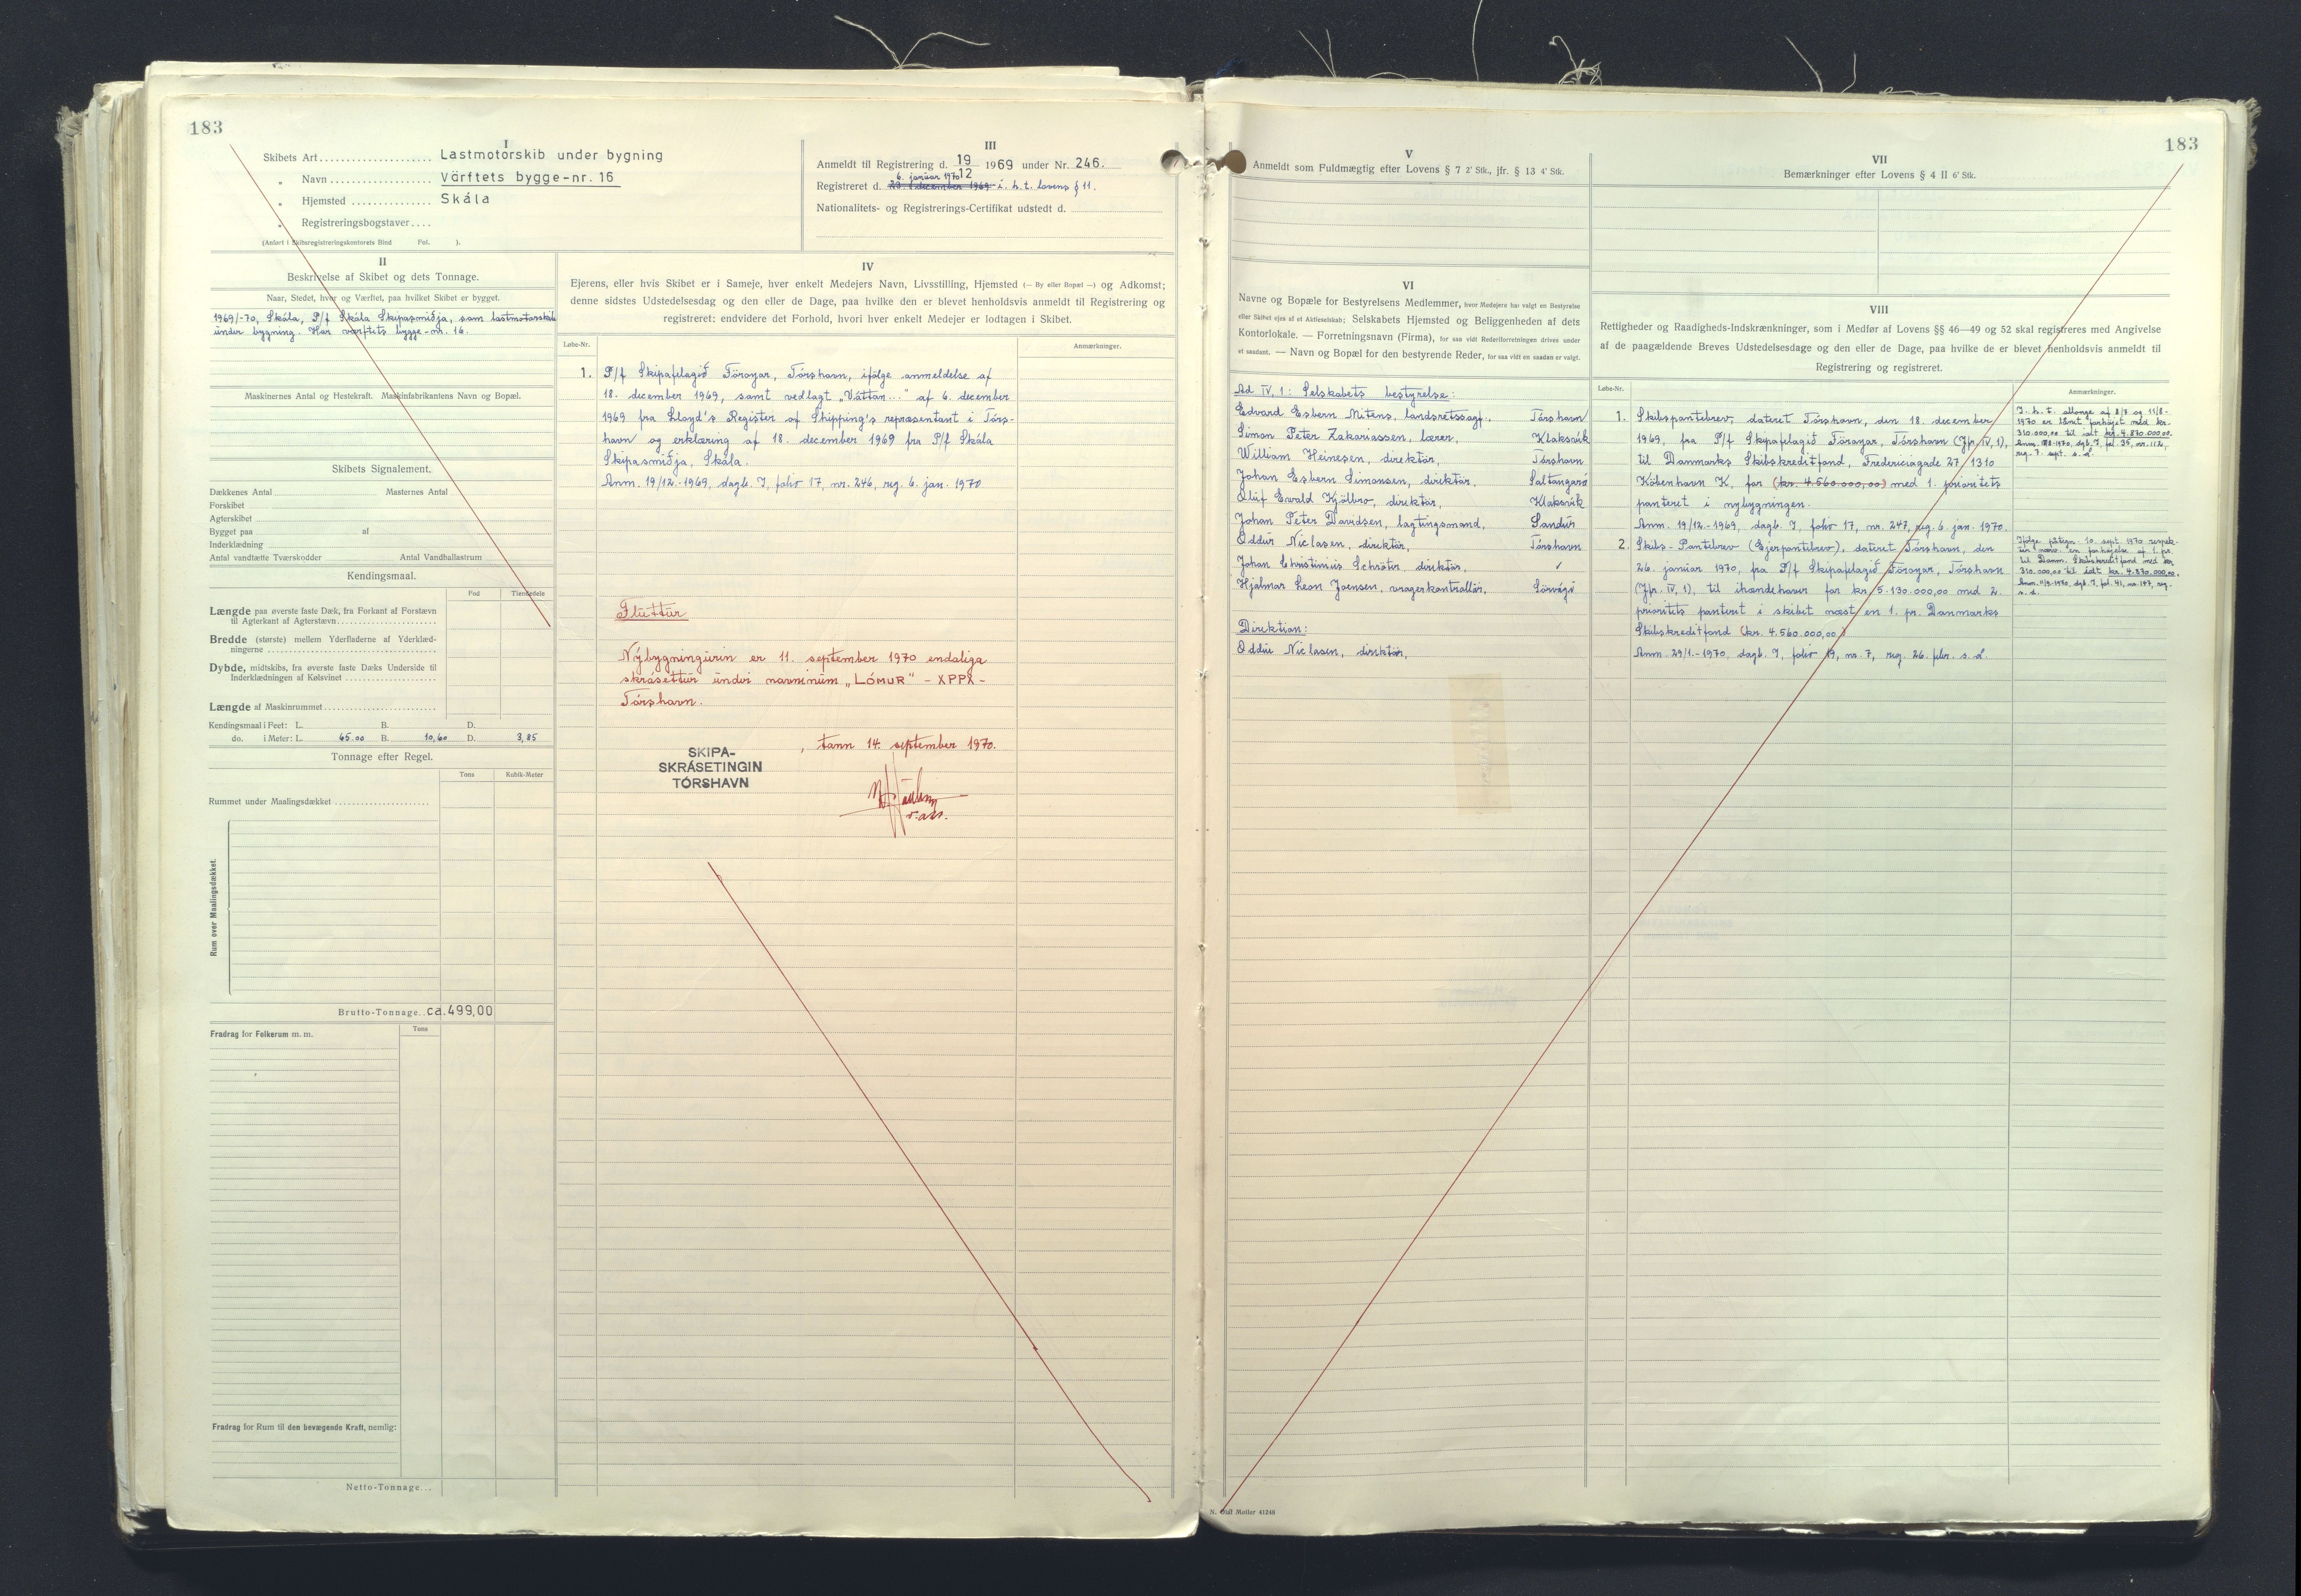 183
I
Skibets Art Lastmotorskib under bygning
„ Navn Värftets bygge-nr. 16
„ Hjemsted Skála
„ Registreringsbogstaver
(Anført i Skibsregistreringskontorets Bind Fol. ).
III
Anmeldt til Registrering d. 19/12 1969 under Nr. 246.
6. januar 1970
Registreret d. 29. december 1969 i. h. t. lovens § 11.
Nationalitets- og Registrerings-Certifikat udstedt d.
II
Beskrivelse af Skibet og dets Tonnage.
Naar, Stedet, hvor og Værftet, paa hvilket Skibet er bygget.
1969/-70, Skála, P/f Skála Skipasmiðja, som lastmotorskib
under bygning. Har værftets bygge-nr. 16.
Maskinernes Antal og Hestekraft. Maskinfabrikantens Navn og Bopæl.
Skibets Signalement.
Dækkenes Antal Masternes Antal
Forskibet
Agterskibet
Bygget paa af
Inderklædning
Antal vandtætte Tværskodder Antal Vandballastrum
Kendingsmaal.
Fod Tiendedele
Længde paa øverste faste Dæk, fra Forkant af Forstævn
til Agterkant af Agterstævn
Bredde (største) mellem Yderfladerne af Yderklæd-
ningerne
Dybde, midtskibs, fra øverste faste Dæks Underside til
Inderklædningen af Kølsvinet
Længde af Maskinrummet
Kendingsmaal i Feet: L. B. D.
do. i Meter: L. 65.00 B. 10,60 D. 3,85
Tonnage efter Regel.
Tons Kubik-Meter
Rummet under Maalingsdækket
Rum over Maalingsdækket.
Brutto-Tonnage ca.499,00
Fradrag for Folkerum m. m. Tons
Fradrag for Rum til den bevægende Kraft, nemlig:
Netto-Tonnage
IV
Ejerens, eller hvis Skibet er i Sameje, hver enkelt Medejers Navn, Livsstilling, Hjemsted (— By eller Bopæl —) og Adkomst;
denne sidstes Udstedelsesdag og den eller de Dage, paa hvilke den er blevet henholdsvis anmeldt til Registrering og
registreret: endvidere det Forhold, hvori hver enkelt Medejer er lodtagen i Skibet.
Løbe-Nr. Anmærkninger.
1. P/f Skipafelagið Föroyar, Tórshavn, ifølge anmeldelse af
18. december 1969, samt vedlagt „Váttan..." af 6. december
1969 fra Lloyd's Register of Shipping's repræsentant i Tórs-
havn og erklæring af 18. december 1969 fra P/f Skála
Skipasmiðja, Skála.
Anm. 19/12.-1969, dagb. I, folio 17, nr. 246, reg. 6. jan. 1970
Fluttur
Nýbygningurin er 11. september 1970 endaliga
skrásettur undir navninum „LÓMUR" - XPPX -
Tórshavn.
SKIPA-
SKRÁSETINGIN
TÓRSHAVN
, tann 14. september 1970.
V
Anmeldt som Fuldmægtig efter Lovens § 7 2' Stk., jfr. § 13 4' Stk.
VI
Navne og Bopæle for Bestyrelsens Medlemmer, hvor Medejere har valgt en Bestyrelse
eller Skibet ejes af et Aktieselskab; Selskabets Hjemsted og Beliggenheden af dets
Kontorlokale. — Forretningsnavn (Firma), for saa vidt Rederiforretningen drives under
et saadant. — Navn og Bopæl for den bestyrende Reder, for saa vidt en saadan er valgt.
Ad IV, 1: Selskabets bestyrelse:
Edvard Esbern Mitens, landsretssagf. Tórshavn
Simon Peter Zakariassen, lærer, Klaksvík
William Heinesen, direktör, Tórshavn
Johan Esbern Simonsen, direktör, Saltangará
Óluf Ewald Kjölbro, direktör, Klaksvík
Johan Peter Davidsen, lagtingsmand, Sandur
Oddur Niclasen, direktör, Tórshavn
Johan Christinius Schröter, direktör,
Hjalmar Leon Joensen, vragerkontrollör, Sörvági
Direktion:
Oddur Niclasen, direktör,
N. Olaf Møller 41248
183
VII
Bemærkninger efter Lovens § 4 II 6' Stk.
VIII
Rettigheder og Raadigheds-Indskrænkninger, som i Medfør af Lovens §§ 46—49 og 52 skal registreres med Angivelse
af de paagældende Breves Udstedelsesdage og den eller de Dage, paa hvilke de er blevet henholdsvis anmeldt til
Registrering og registreret.
Løbe-Nr. Anmærkninger.
1. Skibspantebrev, dateret Tórshavn, den 18. december
1969, fra P/f Skipafelagið Föroyar, Tórshavn (Jfr. IV, 1),
til Danmarks Skibskreditfond, Fredericiagade 27, 1310
København K, for (kr. 4.560.000,00) med 1. prioritets
panteret i nybygningen.
Anm. 19/12.-1969, dagb. I, folio 17, nr. 247, reg. 6. jan. 1970.
I. h. t. allonge af 8/8 og 11/8-
1970 er lånet forhøjet med kr.
310.000,00 til ialt kr. 4.870.000,00.
reg. 7. sept. s. d.
2. Skibs-Pantebrev (Ejerpantebrev), dateret Tórshavn, den
26. januar 1970, fra P/f Skipafelagið Föroyar, Tórshavn
(Jfr. IV, 1), til ihændehaver for kr. 5.130.000,00 med 2.
prioritets panteret i skibet næst en 1. pr. Danmarks
Skibskreditfond (kr. 4.560.000,00)
Anm. 29/1.-1970, dagb. I, folio 19, nr. 7, reg. 26. febr. s. d.
Ifölge påtegn. 10. sept. 1970 respek-
terer nærv. en forhøjelse af 1. pr.
til Danm. Skibskreditfond med kr.
310.000,00 til ialt kr. 4.870.000,00.
Anm. 11/9-1970, dgb. I, fol. 41, nr. 147, reg.
s. d.